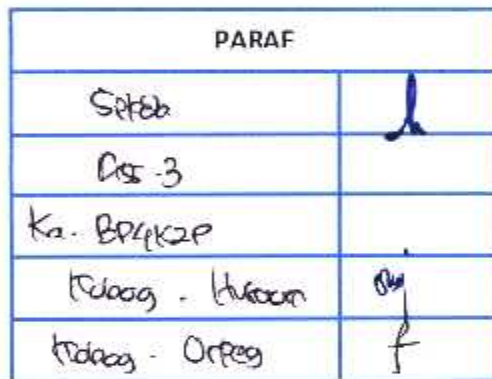 PARAF
Setda
Ass-3
Ka. BP4K2P
Kabag. Hukum
Kabag. Orpeg